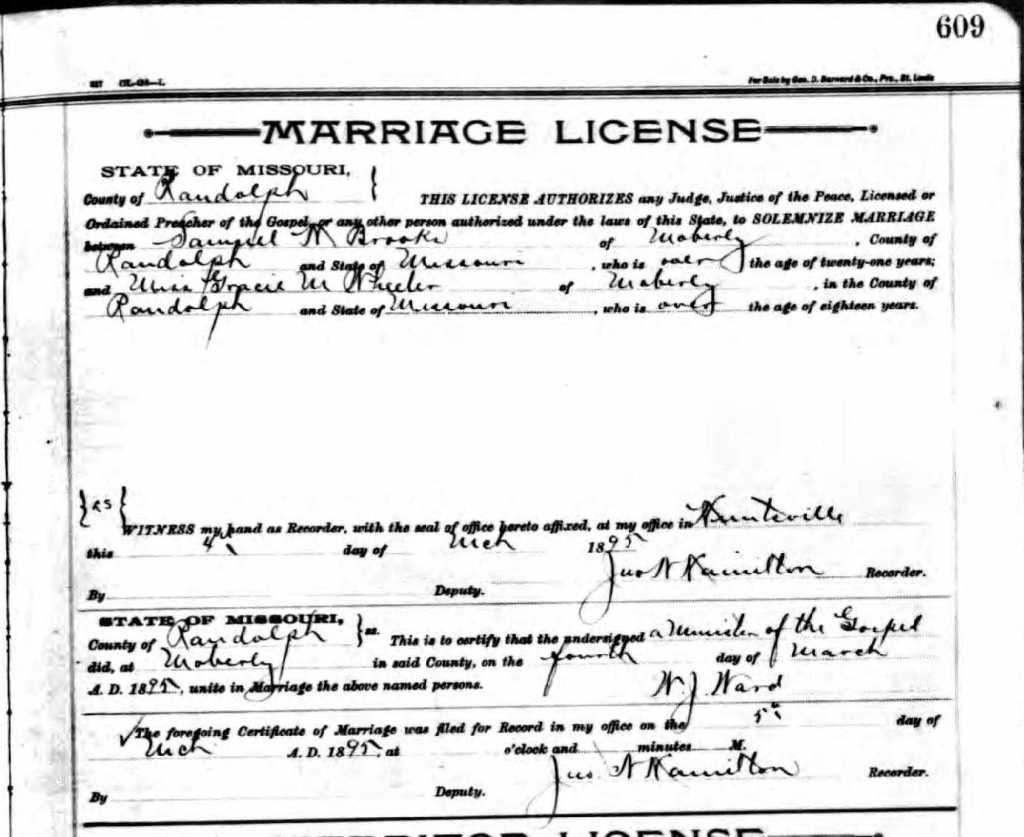 609
For Sale by Geo. D. Barnard & Co., Pro., St. Louis
MARRIAGE LICENSE
STATE OF MISSOURI,
County of Randolph } THIS LICENSE AUTHORIZES any Judge, Justice of the Peace, Licensed or
Ordained Preacher of the Gospel, or any other person authorized under the laws of this State, to SOLEMNIZE MARRIAGE
between Samuel N Brooke of Moberly, County of
Randolph and State of Missouri, who is over the age of twenty-one years;
and Miss Gracie M Wheeler of Moberly, in the County of
Randolph and State of Missouri, who is over the age of eighteen years.
{LS} WITNESS my hand as Recorder, with the seal of office hereto affixed, at my office in Huntsville
this 4 day of Mch 1895
Jno N Hamilton Recorder.
By Deputy.
STATE OF MISSOURI,
County of Randolph } ss. This is to certify that the undersigned a Minister of the Gospel
did, at Moberly in said County, on the fourth day of March
A. D. 1895, unite in Marriage the above named persons.
W. J. Ward
The foregoing Certificate of Marriage was filed for Record in my office on the 5th day of
Mch A. D. 1895, at o'clock and minutes M.
Jno. N Hamilton Recorder.
By Deputy.
LICENSE